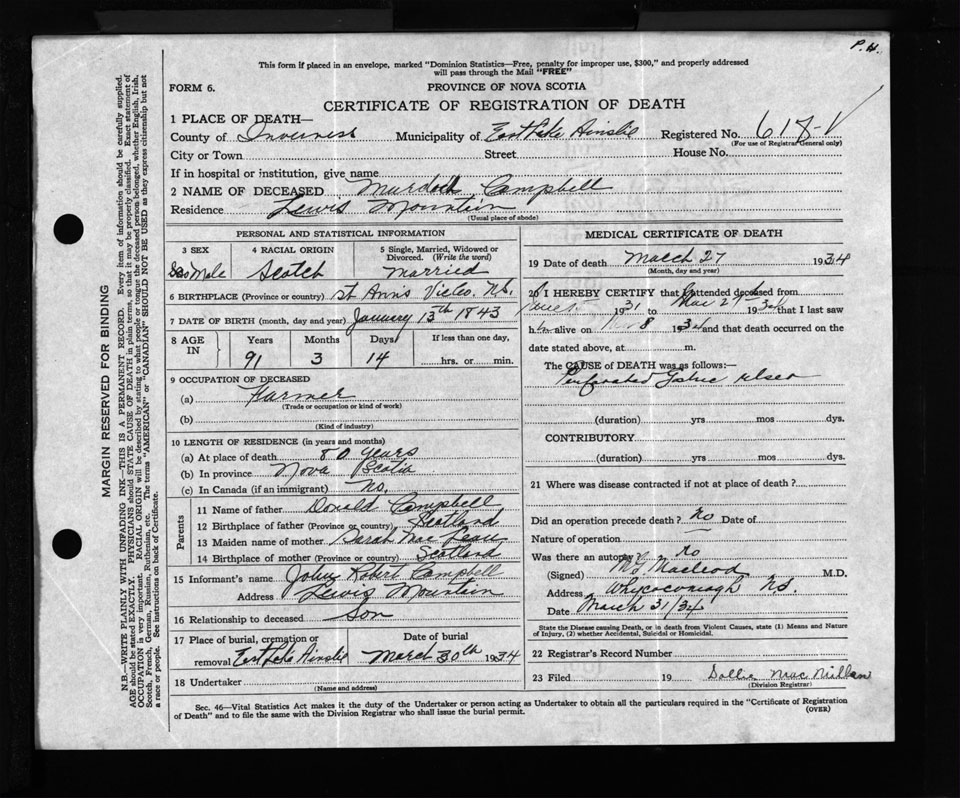 P. H.
This form if placed in an envelope, marked "Dominion Statistics—Free, penalty for improper use, $300," and properly addressed
will pass through the Mail "FREE"
FORM 6.
PROVINCE OF NOVA SCOTIA
CERTIFICATE OF REGISTRATION OF DEATH
1 PLACE OF DEATH—
County of Inverness Municipality of East Lake Ainslie Registered No. 618-V
(For use of Registrar General only)
City or Town Street House No.
If in hospital or institution, give name
2 NAME OF DECEASED Murdoch Campbell
Residence Lewis Mountain
(Usual place of abode)
PERSONAL AND STATISTICAL INFORMATION
3 SEX 4 RACIAL ORIGIN 5 Single, Married, Widowed or Divorced. (Write the word)
Male Scotch Married
6 BIRTHPLACE (Province or country) St Anns Victo. NS.
7 DATE OF BIRTH (month, day and year) January 13th 1843
8 AGE IN Years Months Days If less than one day,
91 3 14 hrs. or min.
9 OCCUPATION OF DECEASED
(a) Farmer
(Trade or occupation or kind of work)
(b)
(Kind of industry)
10 LENGTH OF RESIDENCE (in years and months)
(a) At place of death 80 years
(b) In province Nova Scotia
(c) In Canada (if an immigrant) No.
Parents
11 Name of father Donald Campbell
12 Birthplace of father (Province or country) Scotland
13 Maiden name of mother Sarah Mac Lean
14 Birthplace of mother (Province or country) Scotland
15 Informant's name John Robert Campbell
Address Lewis Mountain
16 Relationship to deceased Son
17 Place of burial, cremation or Date of burial
removal East Lake Ainslie March 30th 1934
18 Undertaker
(Name and address)
MEDICAL CERTIFICATE OF DEATH
19 Date of death March 27 1934
(Month, day and year)
20 I HEREBY CERTIFY that I attended deceased from
1931 to Mar 27 1934 that I last saw
h alive on 8 1934 and that death occurred on the
date stated above, at m.
The CAUSE of DEATH was as follows:—
Perforated Gastric ulcer
(duration) yrs mos dys.
CONTRIBUTORY
(duration) yrs mos dys.
21 Where was disease contracted if not at place of death?
Did an operation precede death? No Date of
Nature of operation
Was there an autopsy No
(Signed) Macleod M.D.
Address Whycocomagh NS.
Date March 31/34
State the Disease causing Death, or in death from Violent Causes, state (1) Means and Nature
of Injury, (2) whether Accidental, Suicidal or Homicidal.
22 Registrar's Record Number
23 Filed 19 Dollie Mac Millan
(Division Registrar)
Sec. 46—Vital Statistics Act makes it the duty of the Undertaker or person acting as Undertaker to obtain all the particulars required in the "Certificate of Registration
of Death" and to file the same with the Division Registrar who shall issue the burial permit.
(OVER)
MARGIN RESERVED FOR BINDING
N.B.—WRITE PLAINLY WITH UNFADING INK—THIS IS A PERMANENT RECORD. Every item of information should be carefully supplied.
AGE should be stated EXACTLY. PHYSICIANS should STATE CAUSE OF DEATH in plain terms, so that it may be properly classified. Exact statement of
OCCUPATION is very important. RACIAL ORIGIN will be described by stating to what people or tongue the deceased person belonged, whether English, Irish,
Scotch, French, German, Russian, Ruthenian, etc. The terms "AMERICAN" or "CANADIAN" SHOULD NOT BE USED as they express citizenship but not
a race or people. See instructions on back of Certificate.